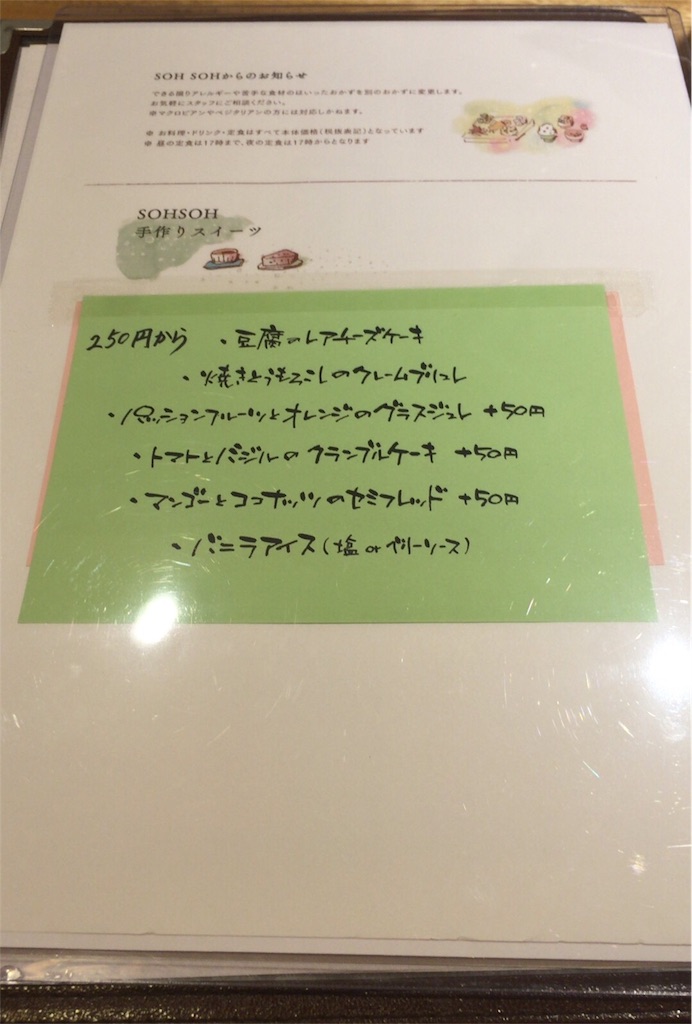 SOH SOHからのお知らせ
できる限りアレルギーや苦手な食材のはいったおかずを別のおかずに変更します。
お気軽にスタッフにご相談ください。
※マクロビアンやベジタリアンの方には対応しかねます。
※ お料理・ドリンク・定食はすべて本体価格(税抜表記)となっています
※ 昼の定食は17時まで、夜の定食は17時からとなります
SOHSOH
手作りスイーツ
250円から ・豆腐のレアチーズケーキ
・焼きとうもろこしのクレームブリュレ
・パッションフルーツとオレンジのグラスジュレ +50円
・トマトとバジルのクランブルケーキ +50円
・マンゴーとココナッツのセミフレッド +50円
・バニラアイス(塩 or ベリーソース)